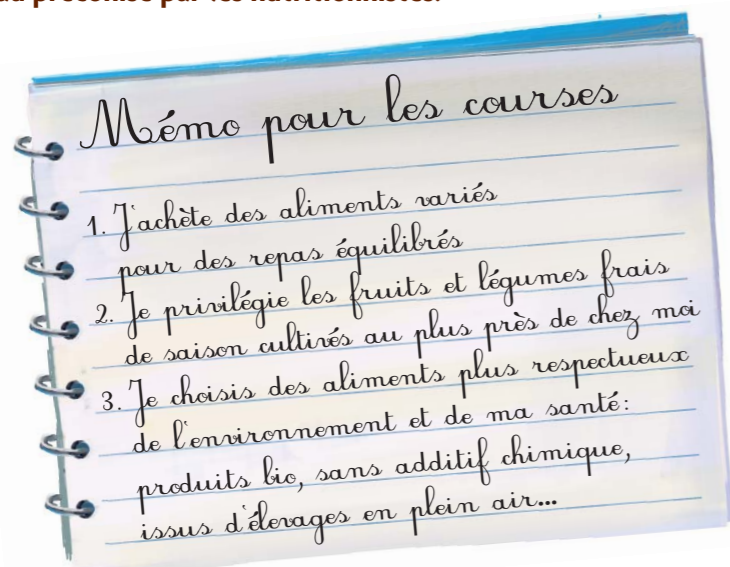 préconisé par les nutritionnistes.
Mémo pour les courses
1. J'achète des aliments variés
pour des repas équilibrés
2. Je privilégie les fruits et légumes frais
de saison cultivés au plus près de chez moi
3. Je choisis des aliments plus respectueux
de l'environnement et de ma santé:
produits bio, sans additif chimique,
issus d'élevages en plein air...